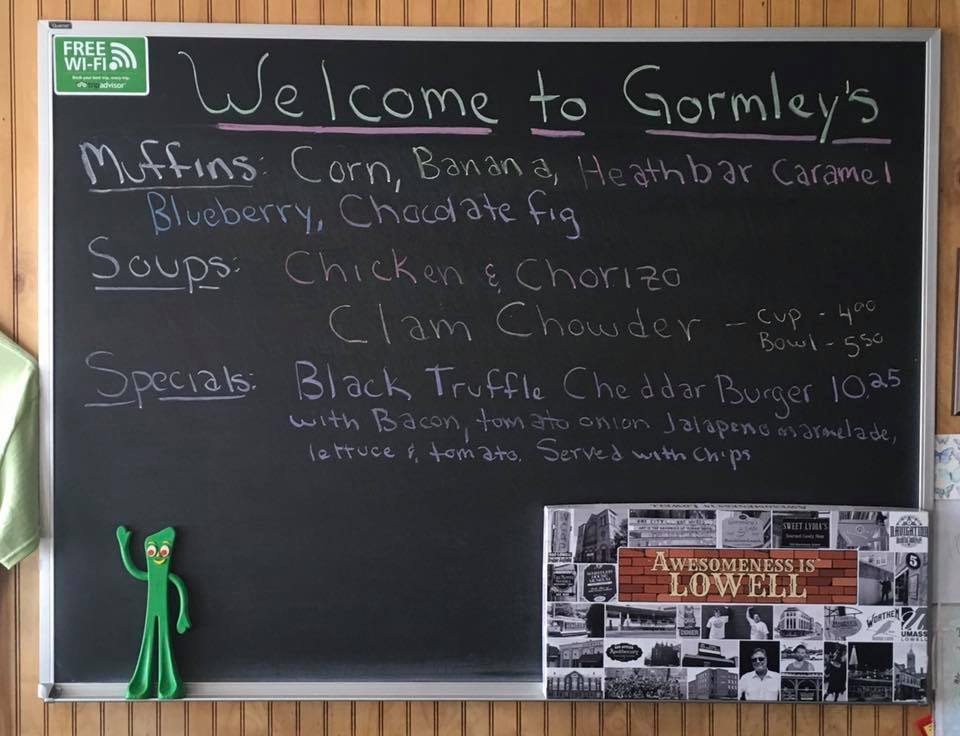 FREE
WI-FI
Book your best trip, every trip.
tripadvisor
Welcome to Gormley's
Muffins: Corn, Banana, Heathbar Caramel
Blueberry, Chocolate fig
Soups: Chicken & Chorizo
Clam Chowder - Cup - 4.00
Bowl - 5.50
Specials: Black Truffle Cheddar Burger 10.25
with Bacon, tomato onion Jalapeno marmelade,
lettuce & tomato. Served with Chips
AWESOMENESS IS
LOWELL
SWEET LYDIA'S
NAVIGATION
5
WORTHEN
UMASS
LOWELL